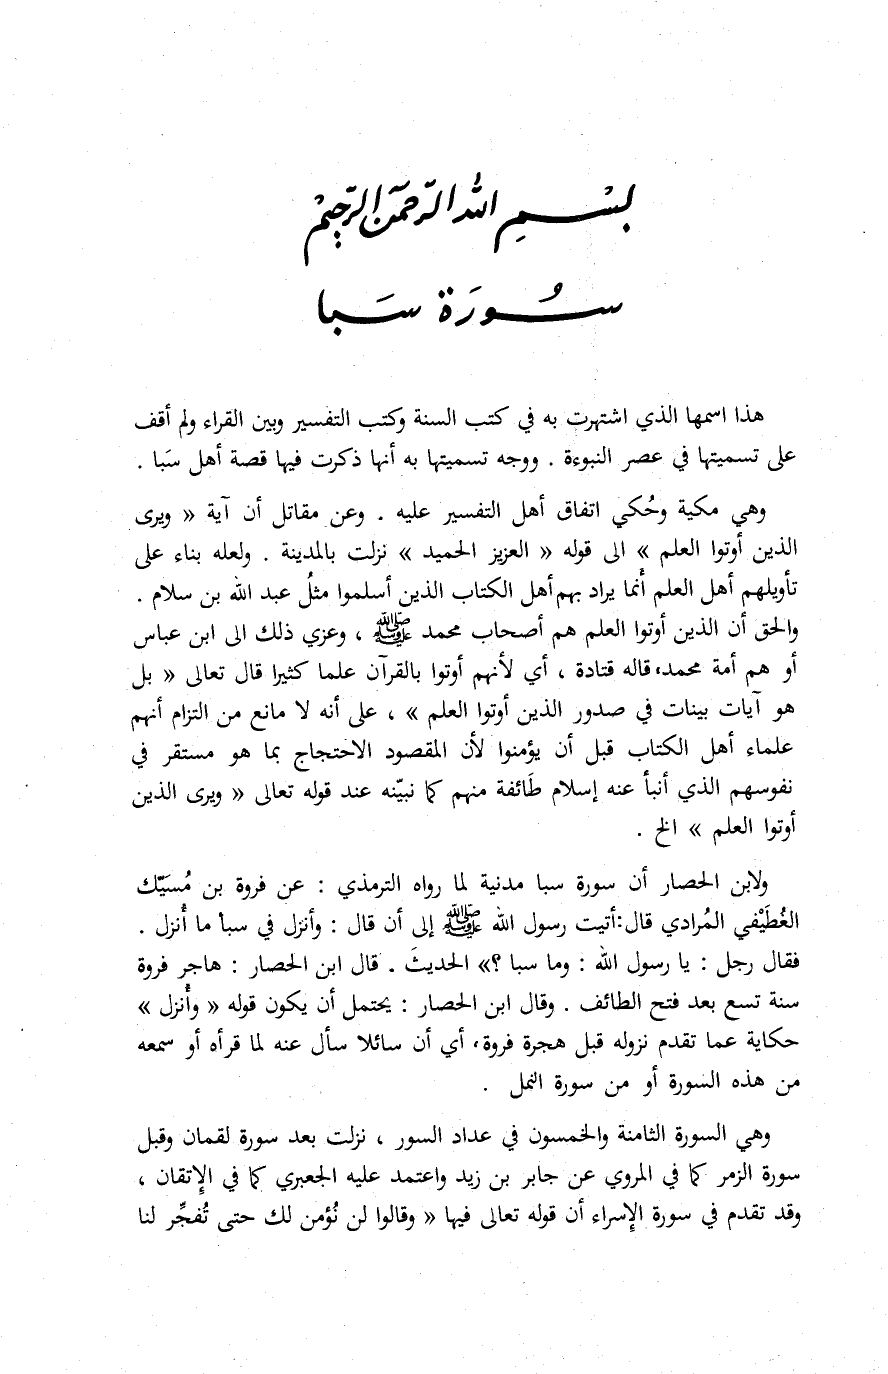 بِسْمِ اللهِ الرَّحْمٰنِ الرَّحِيمْ
سُورَة سَبا
هذا اسمها الذي اشتهرت به في كتب السنة وكتب التفسير وبين القراء ولم أقف
على تسميتها في عصر النبوءة . ووجه تسميتها به أنها ذكرت فيها قصة أهل سَبا .
وهي مكية وحُكي اتفاق أهل التفسير عليه . وعن مقاتل أن آية « ويرى
الذين أوتوا العلم » الى قوله « العزيز الحميد » نزلت بالمدينة . ولعله بناء على
تأويلهم أهل العلم أنما يراد بهم أهل الكتاب الذين أسلموا مثلُ عبد الله بن سلام .
والحق أن الذين أوتوا العلم هم أصحاب محمد ﷺ ، وعزي ذلك الى ابن عباس
أو هم أمة محمد، قاله قتادة ، أي لأنهم أوتوا بالقرآن علما كثيرا قال تعالى « بل
هو آيات بينات في صدور الذين أوتوا العلم » ، على أنه لا مانع من التزام أنهم
علماء أهل الكتاب قبل أن يؤمنوا لأن المقصود الاحتجاج بما هو مستقر في
نفوسهم الذي أنبأ عنه إسلام طَائفة منهم كما نبيّنه عند قوله تعالى « ويرى الذين
أوتوا العلم » الخ .
ولابن الحصار أن سورة سبا مدنية لما رواه الترمذي : عن فروة بن مُسَيّك
الغُطَيْفي المُرادي قال: أتيت رسول الله ﷺ إلى أن قال : وأنزل في سبأ ما أُنزل .
فقال رجل : يا رسول الله : وما سبا ؟» الحديثَ . قال ابن الحصار : هاجر فروة
سنة تسع بعد فتح الطائف . وقال ابن الحصار : يحتمل أن يكون قوله « وأُنزل »
حكاية عما تقدم نزوله قبل هجرة فروة، أي أن سائلا سأل عنه لما قرأه أو سمعه
من هذه السورة أو من سورة النمل .
وهي السورة الثامنة والخمسون في عداد السور ، نزلت بعد سورة لقمان وقبل
سورة الزمر كما في المروي عن جابر بن زيد واعتمد عليه الجعبري كما في الإتقان ،
وقد تقدم في سورة الإسراء أن قوله تعالى فيها « وقالوا لن نُؤمن لك حتى تُفجِّر لنا